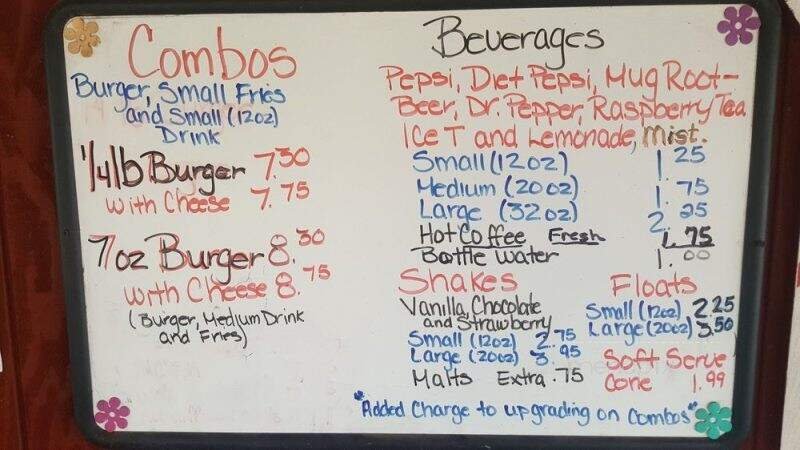 Combos
Burger, Small Fries
and Small (12oz)
Drink
1/4 lb Burger 7.50
with Cheese 7.75
7oz Burger 8.50
with Cheese 8.75
(Burger, Medium Drink
and Fries)
Beverages
Pepsi, Diet Pepsi, Mug Root-
Beer, Dr. Pepper, Raspberry Tea
Ice T and Lemonade, Mist.
Small (12oz) 1.25
Medium (20oz) 1.75
Large (32oz) 2.25
Hot Coffee Fresh 1.75
Bottle Water 1.00
Shakes
Vanilla, Chocolate
and Strawberry
Small (12oz) 2.75
Large (20oz) 3.95
Malts Extra .75
Floats
Small (12oz) 2.25
Large (20oz) 3.50
Soft Serve
Cone 1.99
"Added Charge to upgrading on Combos"